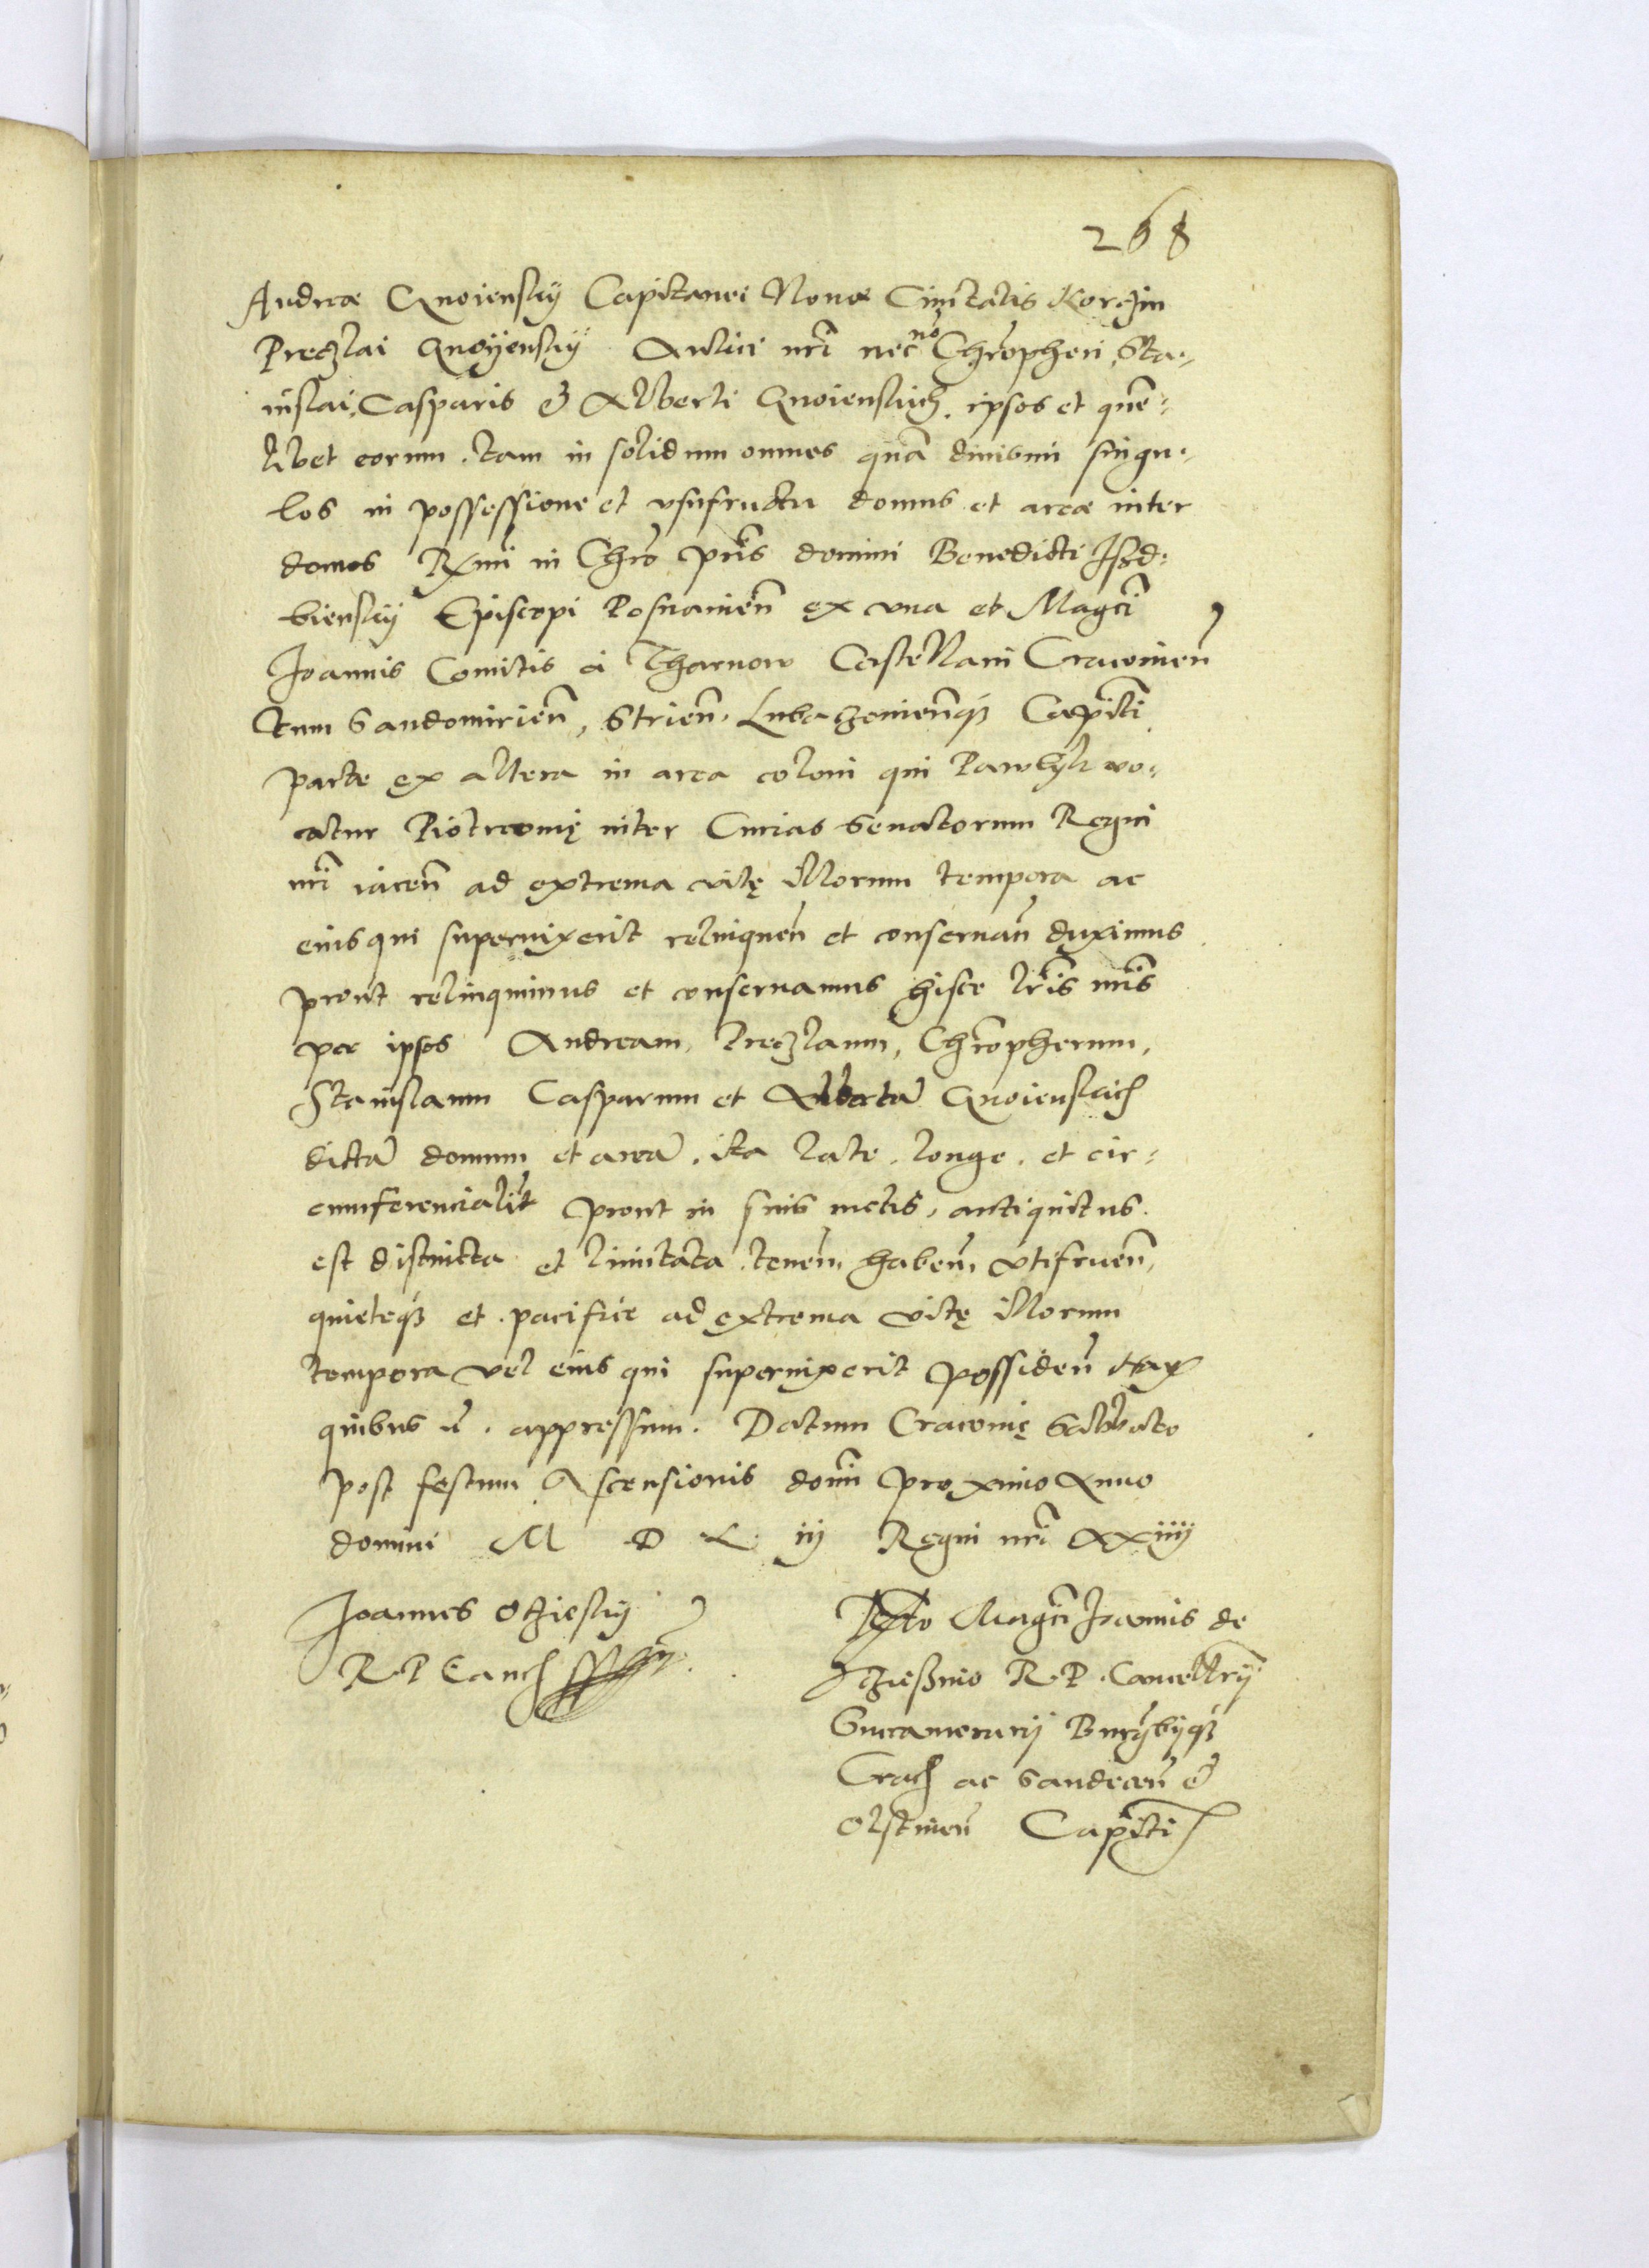 268
Andreæ Gnoiensky Capitanei Nouæ Ciuitatis Korczin
Preczlai Gnoyensky Aulici nrī nec nō Chrōpheri, Sta-
nislai, Casparis & Alberti Gnoienskich. ipsos et quē-
libet eorum. tam in solidum omnes quā diuisim singu-
los in possessione et vsufructu domus et areæ inter
domos Rmī in Chrō prīs domini Benedicti Isd-
biensky Episcopi Posnanieñ ex vna et Magcī
Joannis Comitis a Tharnow Castellani Cracouieñ
tum Sandomirieñ, Strieñ. Lubaczouieñq3 Capitī
parte ex altera in area coloni qui Pawlyk vo-
catur Piotrcouię inter Curias Senatorum Regni
nrī iaceñ ad extrema vitę illorum tempora ac
eius qui superuixerit relinqueñ et conseruañ duximus
prout relinquimus et conseruamus hisce lrīs nrīs
per ipsos Andream, Preczlaum, Chrōpherum,
Stanislaum Casparum et Albertū Gnoienskich
dictā domum et areā. ita late. longe. et cir-
cumferencialit̄ prout in suis metis, antiquitus.
est distincta et limitata. teneñ habeñ vtifrueñ,
quieteq3 et pacifice ad extrema vitę illorum
tempora vel eius qui superuixerit possideñ Har
quibus ẽ. appressum. Datum Cracouię Sabbato
post festum Ascensionis domī proximo Anno
domini M D L iij Regni nrī XXiiij
Joannes Ocziesky
R. P. Canc
Relatio Magcī Joannis de
Ocziessino R. P. Cancellrij
Succamerarij Burgbijq3
Crac ac Sandeceñ &
Olstineñ Capitī